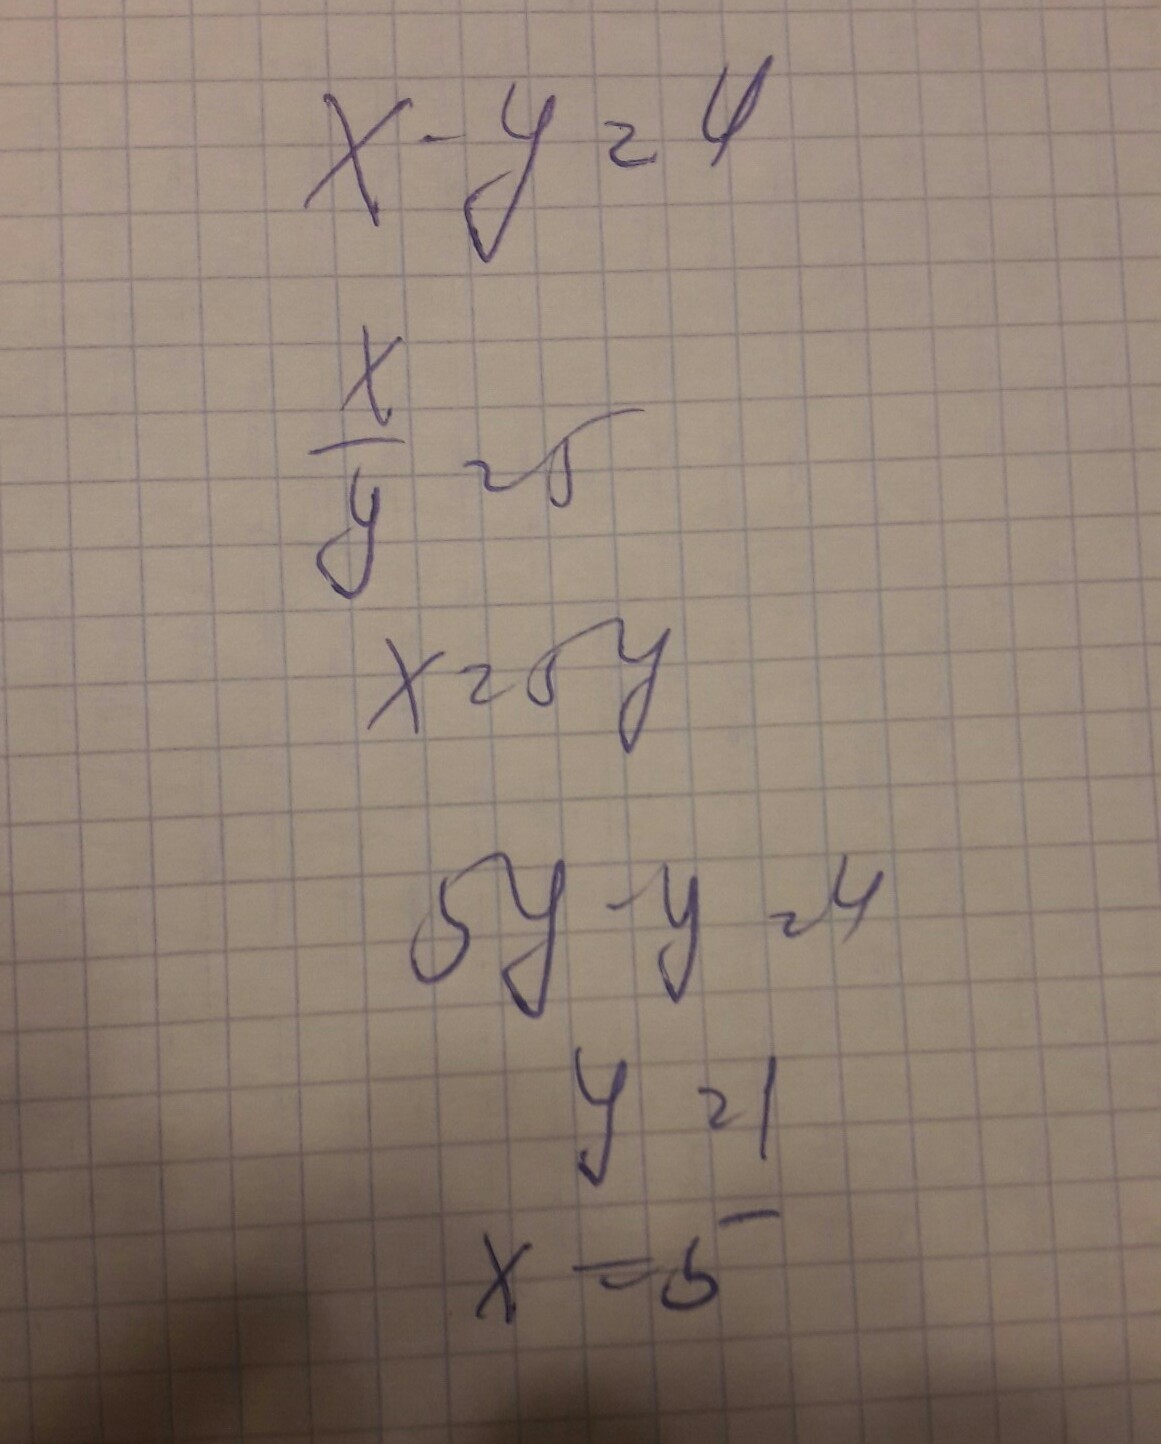 x - y = 4
x/y = 5
x = 5y
5y - y = 4
y = 1
x = 5